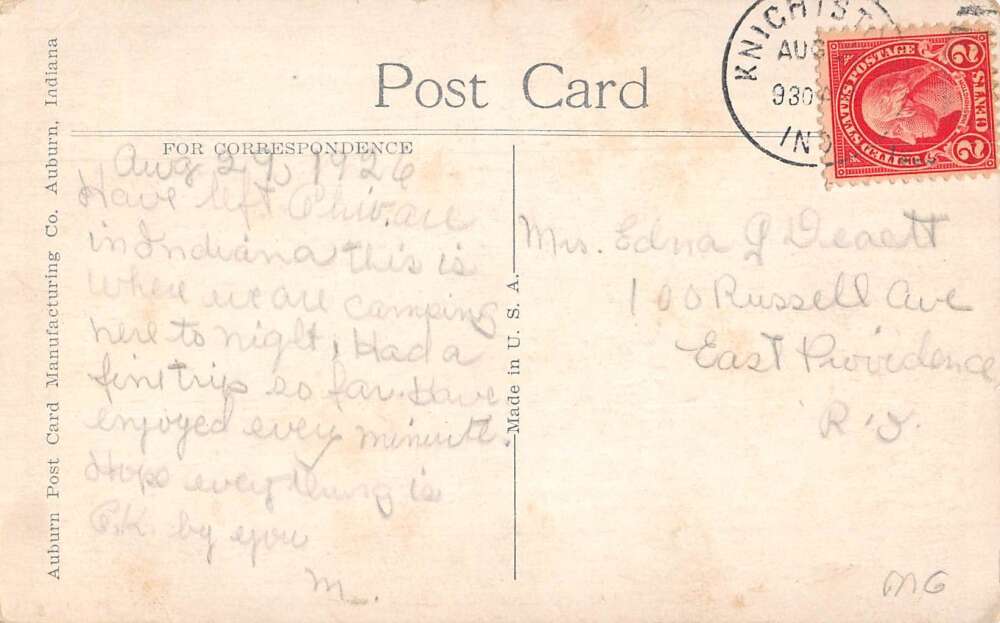 Post Card
FOR CORRESPONDENCE
Auburn Post Card Manufacturing Co. Auburn, Indiana
Made in U. S. A.
Aug 29, 1926
Have left Ohio. are
in Indiana this is
where we are camping
here to night, Had a
fine trip so far. Have
enjoyed every minute.
Hope everything is
O.K. by you
M.
Mrs. Edna G
100 Russell Ave
East Providence
R.I.
MG
KNIGHTST
AUG
930
IND
UNITED STATES POSTAGE
2 CENTS 2